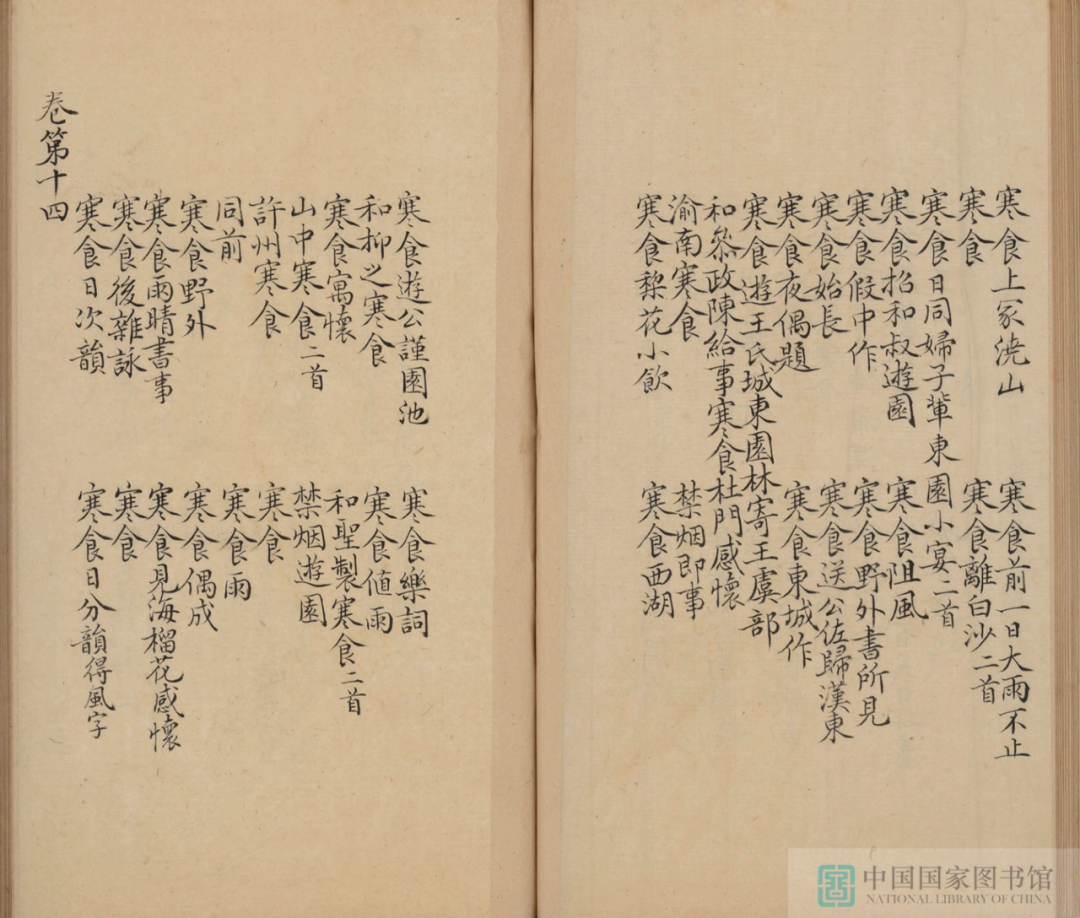 寒食上冢澆山　寒食前一日大雨不止
寒食　寒食離白沙二首
寒食日同婦子輩東園小宴二首
寒食招和叔遊園　寒食阻風
寒食假中作　寒食野外書所見
寒食始長　寒食送公佐歸漢東
寒食夜偶題　寒食東城作
寒食遊王氏城東園林寄王虞部
和叅政陳給事寒食杜門感懷
渝南寒食　禁烟即事
寒食棃花小飲　寒食西湖
寒食遊公謹園池　寒食樂詞
和抑之寒食　寒食值雨
寒食寓懷　和聖製寒食二首
山中寒食二首　禁烟遊園
許州寒食　寒食
同前　寒食雨
寒食野外　寒食偶成
寒食雨晴書事　寒食見海榴花感懷
寒食後雜詠　寒食
寒食日次韻　寒食日分韻得風字
卷第十四
中国国家图书馆
NATIONAL LIBRARY OF CHINA